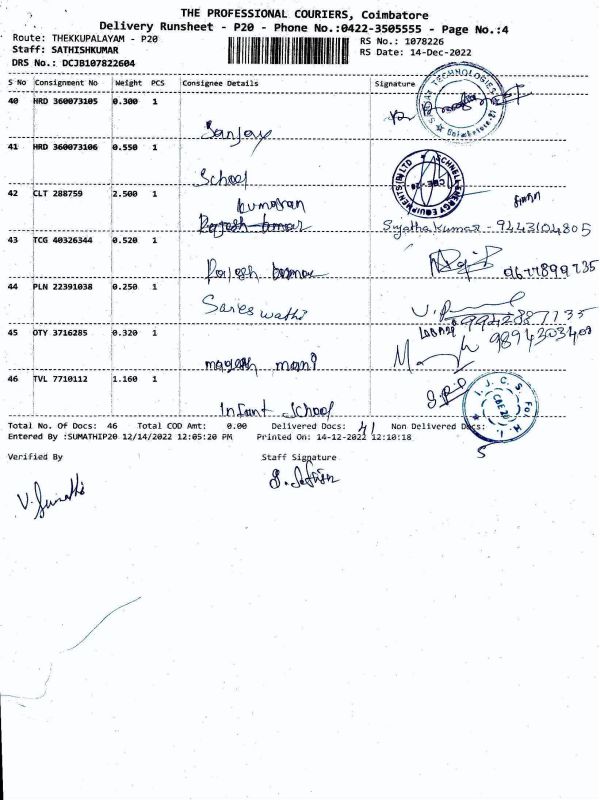 THE PROFESSIONAL COURIERS, Coimbatore
Delivery Runsheet - P20 - Phone No.:0422-3505555 - Page No.:4
Route: THEKKUPALAYAM - P20
RS No.: 1078226
Staff: SATHISHKUMAR
RS Date: 14-Dec-2022
DRS No.: DCJB107822604
S No Consignment No Weight PCS Consignee Details Signature
40 HRD 360073105 0.300 1
Sanjay
TECHNOLOGIES
41 HRD 360073106 0.550 1
School
42 CLT 288759 2.500 1
kumaran
Rajesh kumar Sujatha kumar - 9443104805
43 TCG 40326344 0.520 1
Rajesh kumar 9677899735
44 PLN 22391038 0.250 1
Saries wathi 9942887735
45 OTY 3716285 0.320 1
magesh mani 9894303403
46 TVL 7710112 1.160 1
Infant School
Total No. Of Docs: 46 Total COD Amt: 0.00 Delivered Docs: 41 Non Delivered Docs: 5
Entered By :SUMATHIP20 12/14/2022 12:05:20 PM Printed On: 14-12-2022 12:10:18
Verified By Staff Signature
V. Sumathi